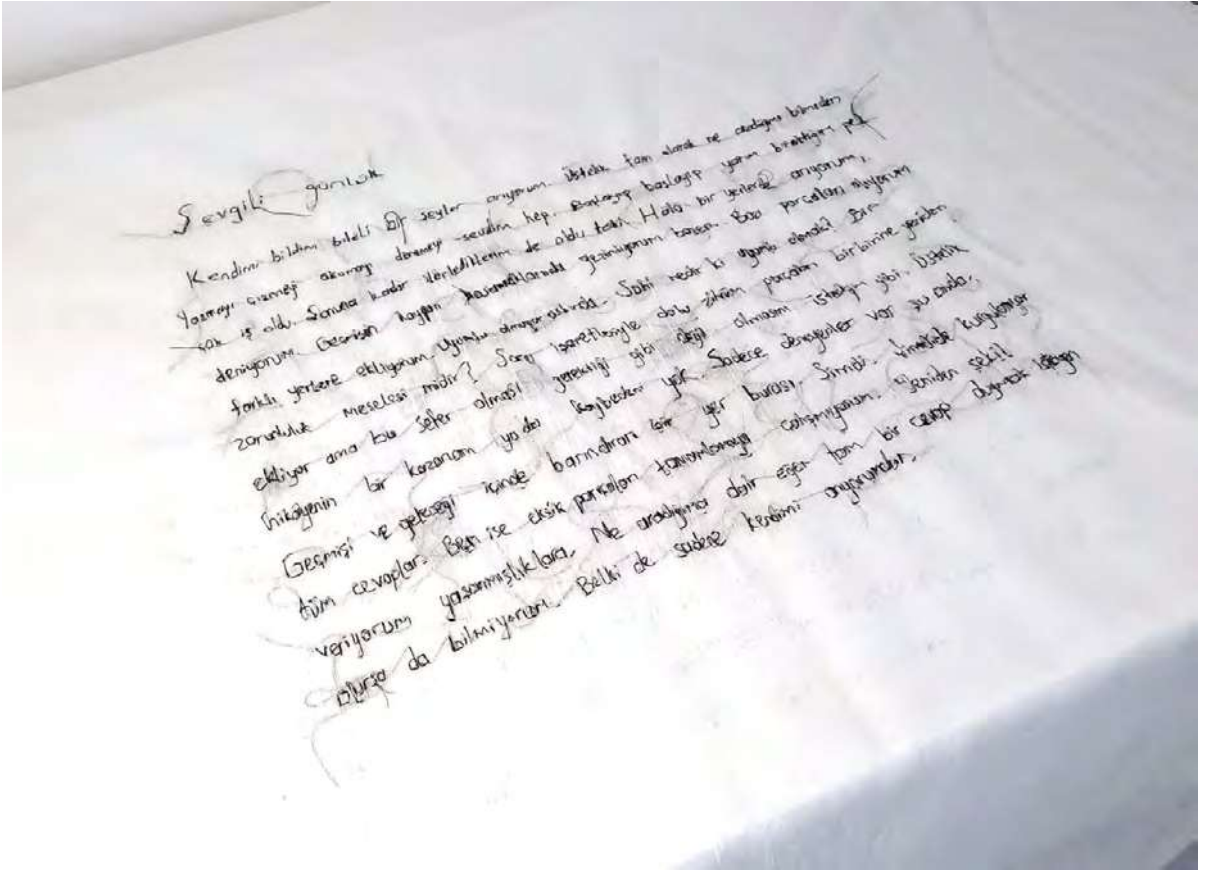 Sevgili günlük
Kendimi bildim bileli bir şeyler arıyorum üstelik tam olarak ne aradığımı bilmeden
Yazmayı çizmeyi okumayı denemeyi sevdim hep. Başlayıp başlayıp yarım bıraktığım pek
çok iş oldu. Sonuna kadar ilerlediklerim de oldu tabi. Hala bir yerlerde arıyorum,
deniyorum. Geçmişin kaygan basamaklarında geziniyorum bazen. Bazı parçaları alıyorum
farklı yerlere ekliyorum. Uyumlu olmuyor aslında. Sahi nedir ki uyumlu olmak? Bir
zorunluluk meselesi midir? Soru işaretleriyle dolu zihnim parçaları birbirine yeniden
ekliyor ama bu sefer olması gerektiği gibi değil olmasını istediğim gibi. Üstelik
hikayenin bir kazananı ya da kaybedeni yok. Sadece deneyenler var şu anda,
Geçmişi ve geleceği içinde barındıran bir yer burası. Şimdi. İlmekle kurgulanıyor
tüm cevaplar. Ben ise eksik parçaları tamamlamaya çalışmıyorum. Yeniden şekil
veriyorum yaşanmışlıklara. Ne aradığıma dair eğer tam bir cevap duymak istiyorsan
olursa da bilmiyorum. Belki de sadece kendimi arıyorumdur.